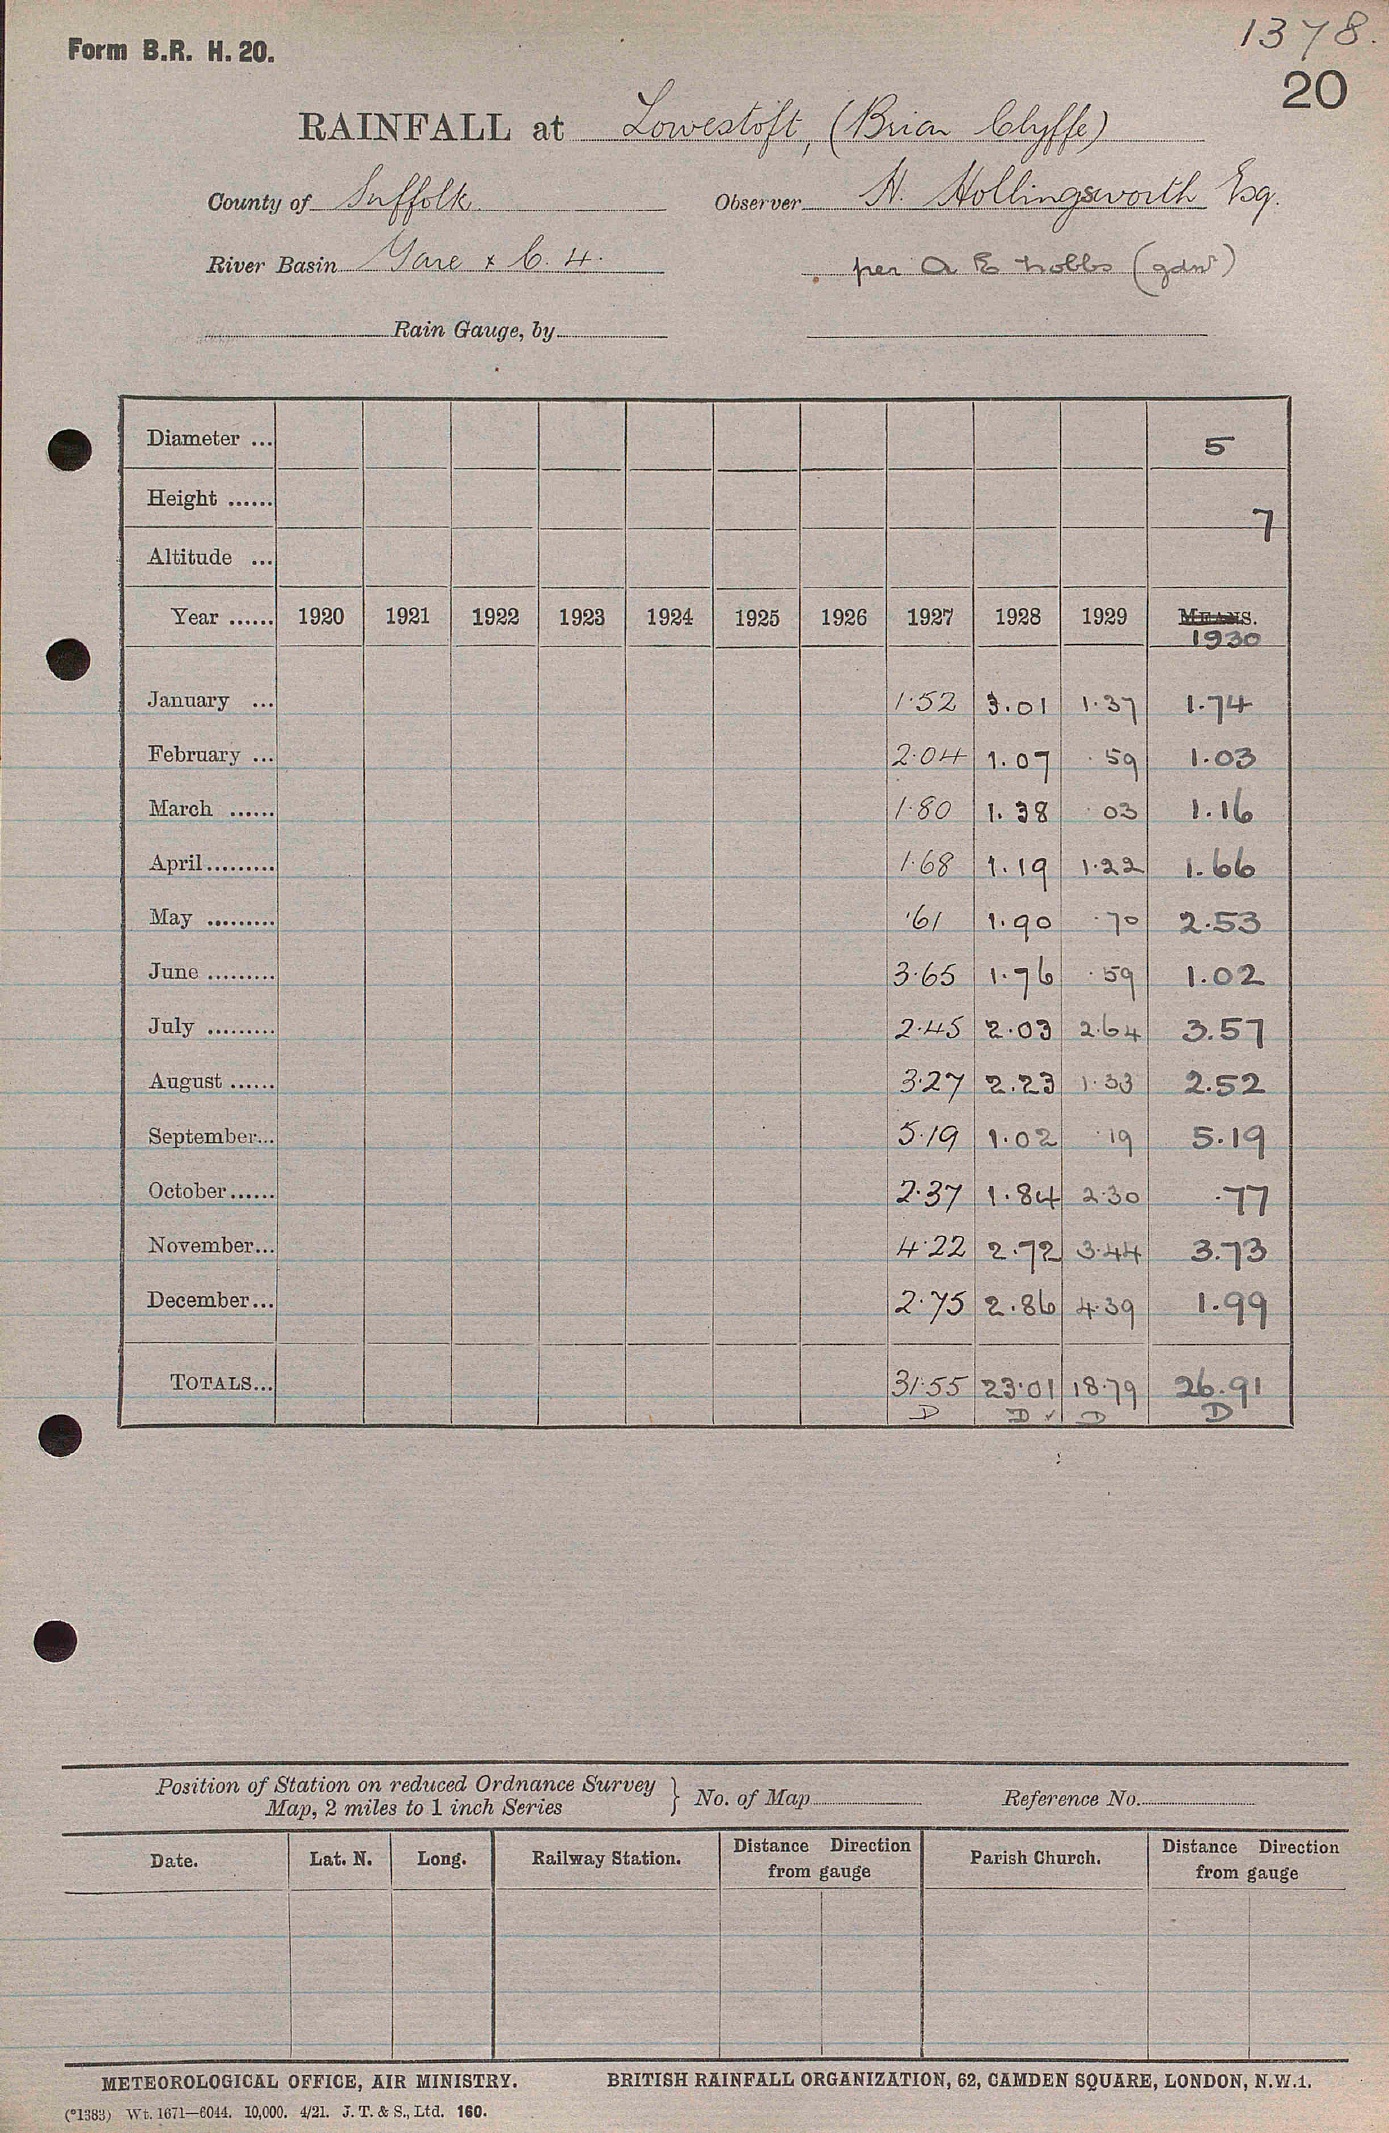 1378.
Form B.R. H. 20.
20
RAINFALL at Lowestoft, (Briar Clyffe)
County of Suffolk. Observer H. Hollingsworth Esq.
River Basin Yare & C. 4. per A E Nobbs (gdnr)
Rain Gauge, by
Diameter ... 5
Height ...... 7
Altitude ...
Year ...... 1920 1921 1922 1923 1924 1925 1926 1927 1928 1929 MEANS.
1930
January ... 1·52 3.01 1·37 1.74
February ... 2·04 1.07 ·59 1.03
March ...... 1·80 1.38 ·03 1.16
April ......... 1·68 1.19 1·22 1.66
May ......... ·61 1.90 ·70 2.53
June ......... 3·65 1.76 ·59 1.02
July ......... 2·45 2.03 2·64 3.57
August ...... 3·27 2.23 1·33 2.52
September... 5·19 1.02 ·19 5.19
October...... 2·37 1.84 2·30 .77
November... 4·22 2.72 3·44 3.73
December... 2·75 2.86 4·39 1.99
TOTALS... 31·55 23·01 18·79 26.91
D D ✓ D D
Position of Station on reduced Ordnance Survey
Map, 2 miles to 1 inch Series } No. of Map Reference No.
Date. Lat. N. Long. Railway Station. Distance Direction from gauge Parish Church. Distance Direction from gauge
METEOROLOGICAL OFFICE, AIR MINISTRY. BRITISH RAINFALL ORGANIZATION, 62, CAMDEN SQUARE, LONDON, N.W.1.
(*1383) Wt. 1671—6044. 10,000. 4/21. J. T. & S., Ltd. 160.